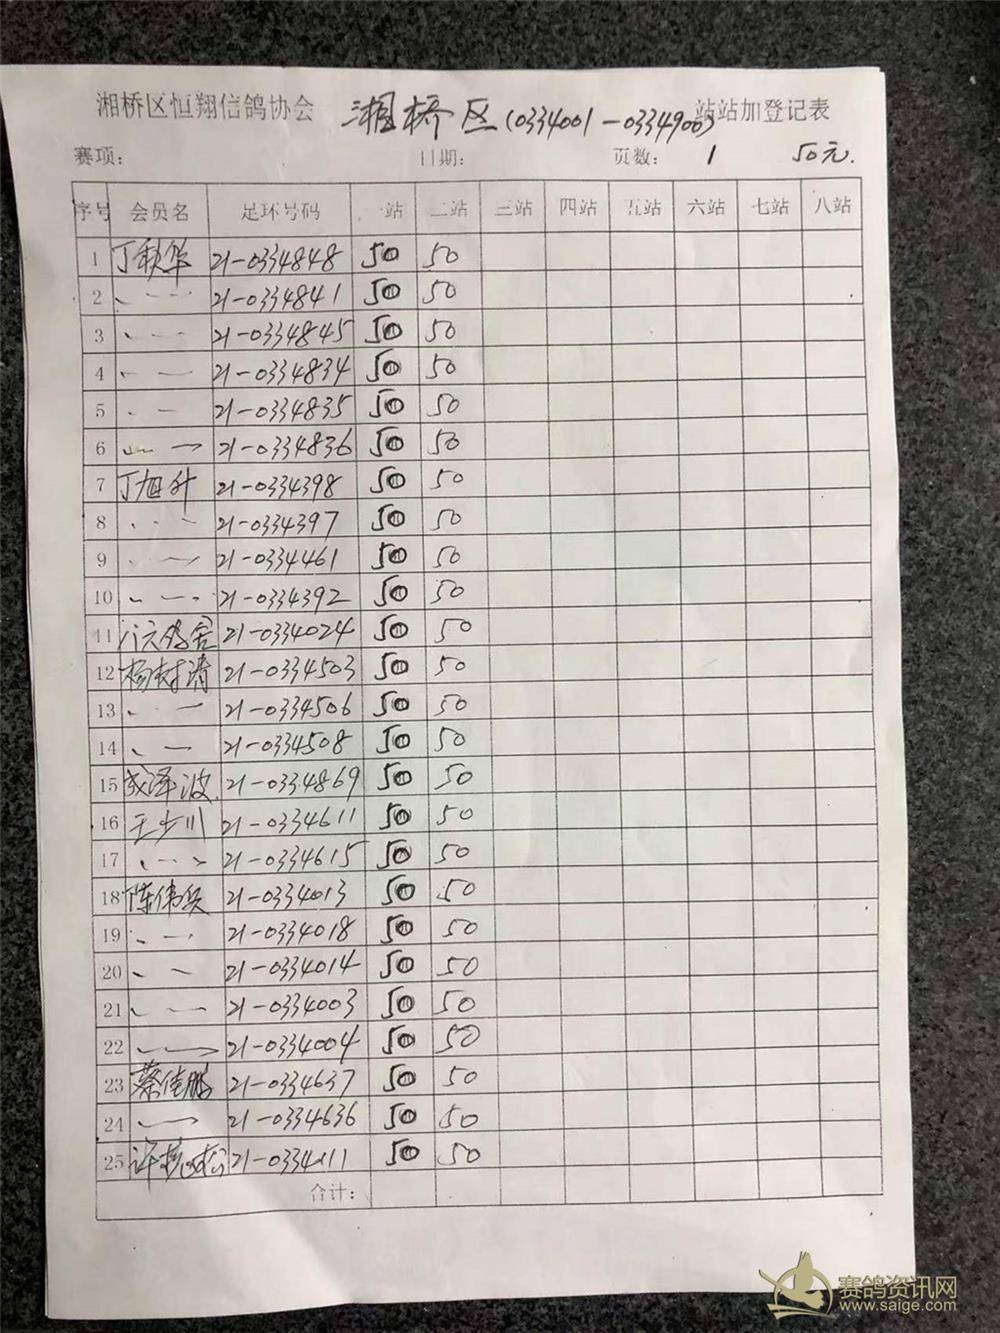 湘桥区恒翔信鸽协会 湘桥区(0334001-0334900) 站站加登记表
赛项: 日期: 页数: 1 50元.
序号 会员名 足环号码 一站 二站 三站 四站 五站 六站 七站 八站
1 丁秋华 21-0334848 50 50
2 21-0334841 50 50
3 21-0334845 50 50
4 21-0334834 50 50
5 21-0334835 50 50
6 21-0334836 50 50
7 丁旭升 21-0334398 50 50
8 21-0334397 50 50
9 21-0334461 50 50
10 21-0334392 50 50
11 21-0334024 50 50
12 21-0334503 50 50
13 21-0334506 50 50
14 21-0334508 50 50
15 成泽波 21-0334869 50 50
16 21-0334611 50 50
17 21-0334615 50 50
18 陈伟兵 21-0334013 50 50
19 21-0334018 50 50
20 21-0334014 50 50
21 21-0334003 50 50
22 21-0334004 50 50
23 蔡佳鹏 21-0334637 50 50
24 21-0334636 50 50
25 50 50
合计:
赛鸽资讯网
www.saige.com